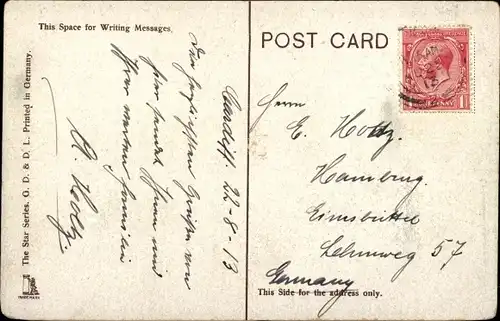 This Space for Writing Messages.
POST CARD
The Star Series. G. D. & D. L. Printed in Germany.
TRADE MARK
Cardiff. 22-8-13
Die herzlichsten Grüßen von
hier sendet Ihnen und
Ihrer werten Familie
Herrn
E. Holtz.
Hamburg
Eimsbüttel
57
Germany
This Side for the address only.